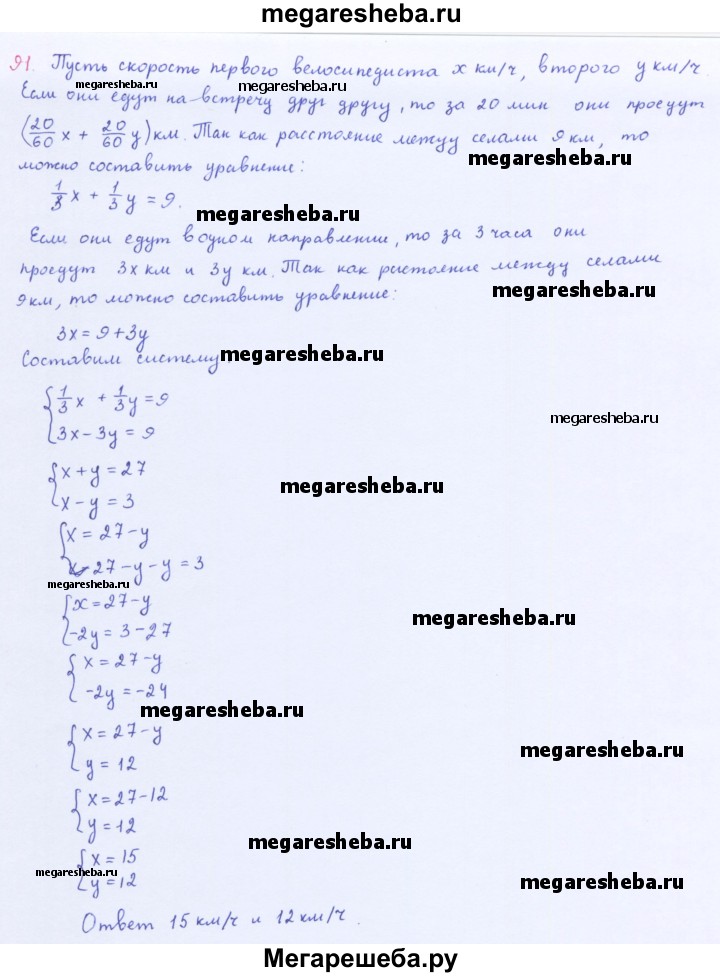 megaresheba.ru
91. Пусть скорость первого велосипедиста x км/ч, второго y км/ч.
megaresheba.ru
megaresheba.ru
Если они едут на-встречу друг другу, то за 20 мин они проедут
(20/60 x + 20/60 y) км. Так как расстояние между селами 9 км, то
можно составить уравнение:
megaresheba.ru
1/3 x + 1/3 y = 9.
megaresheba.ru
Если они едут в одном направлении, то за 3 часа они
проедут 3x км и 3y км. Так как растояние между селами
9 км, то можно составить уравнение:
megaresheba.ru
3x = 9 + 3y
Составим систему
megaresheba.ru
{ 1/3 x + 1/3 y = 9
3x - 3y = 9
megaresheba.ru
{ x + y = 27
x - y = 3
megaresheba.ru
{ x = 27 - y
27 - y - y = 3
megaresheba.ru
{ x = 27 - y
-2y = 3 - 27
megaresheba.ru
{ x = 27 - y
-2y = -24
megaresheba.ru
{ x = 27 - y
y = 12
megaresheba.ru
{ x = 27 - 12
y = 12
megaresheba.ru
{ x = 15
y = 12
megaresheba.ru
megaresheba.ru
Ответ 15 км/ч и 12 км/ч.
Мегарешеба.ру